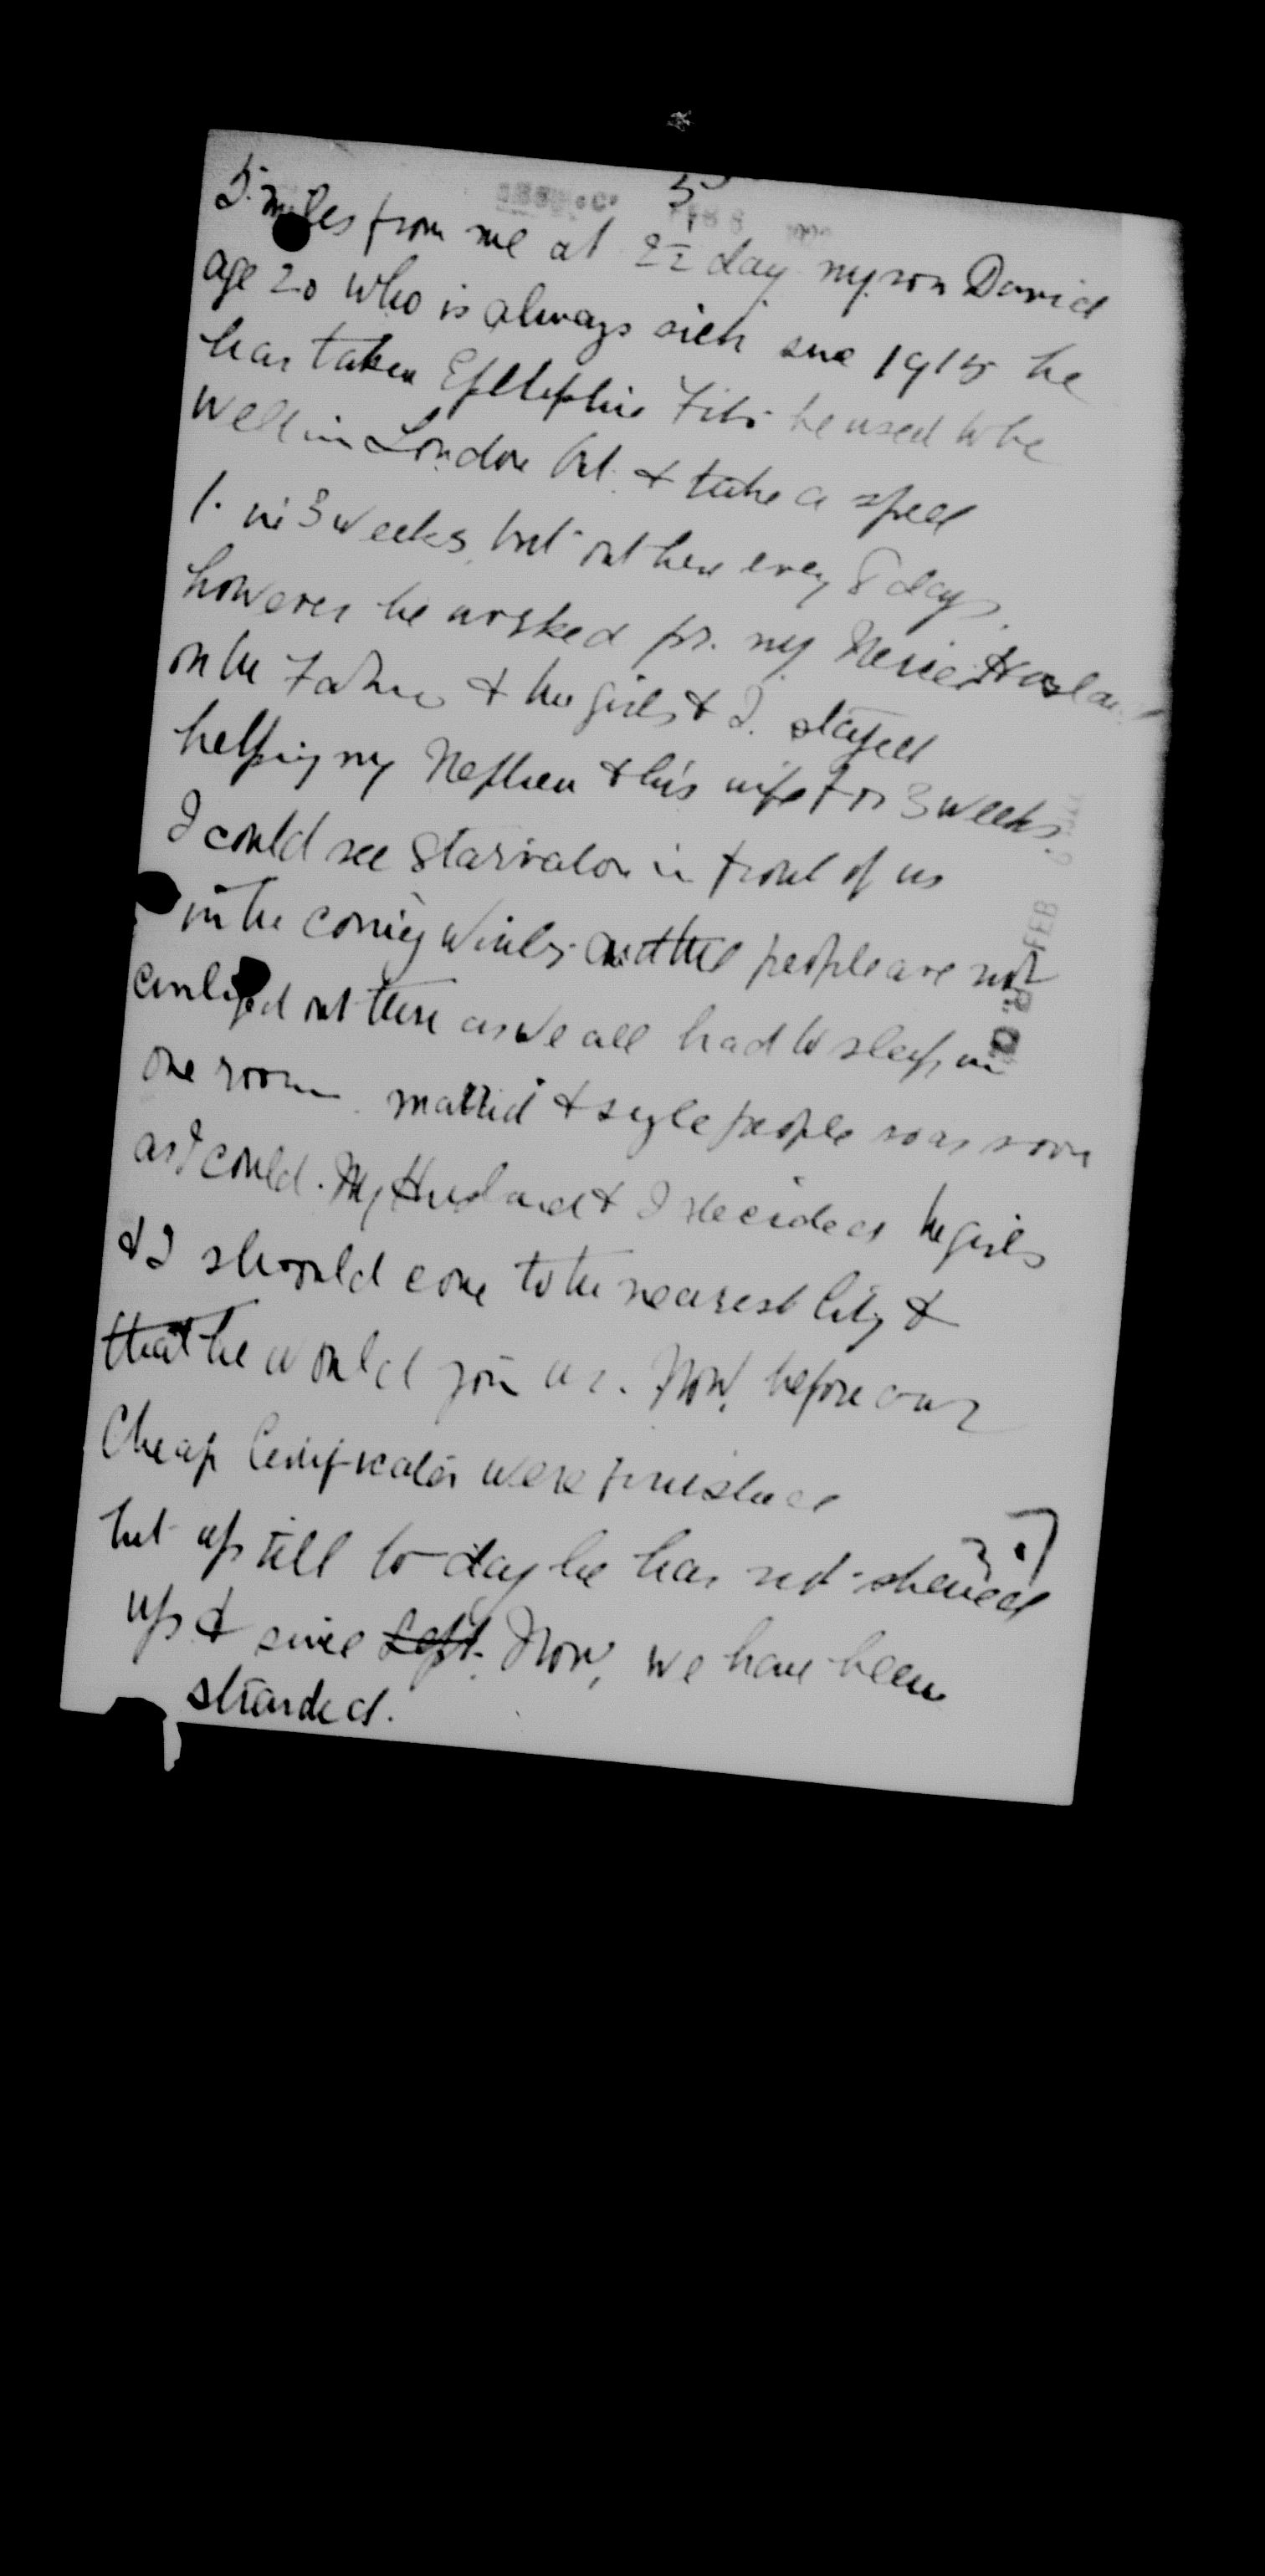 5
5. miles from me at 2½ day my son David
age 20 who is always sick sine 1915 he
has taken Epeleptic Fits he used to be
well in London but & take a spell
1. in 3 weeks, but out here every 8 days.
however he worked for. my Neice Husland
on the Farm & the girls & I. stayed
helping my Nephew & his wife for 3 weeks.
I could see Starvation in front of us
in the coming Winter and the people are not
out there as we all had to sleep in
one room married & single people so as soon
as I could. My Husband & I decided the girls
& I should come to the nearest City &
that he would join us. Now, before our
Cheap Certificates were finished
but up till to-day he has not showed
up & since Left. Now, we have been
stranded.
FEB